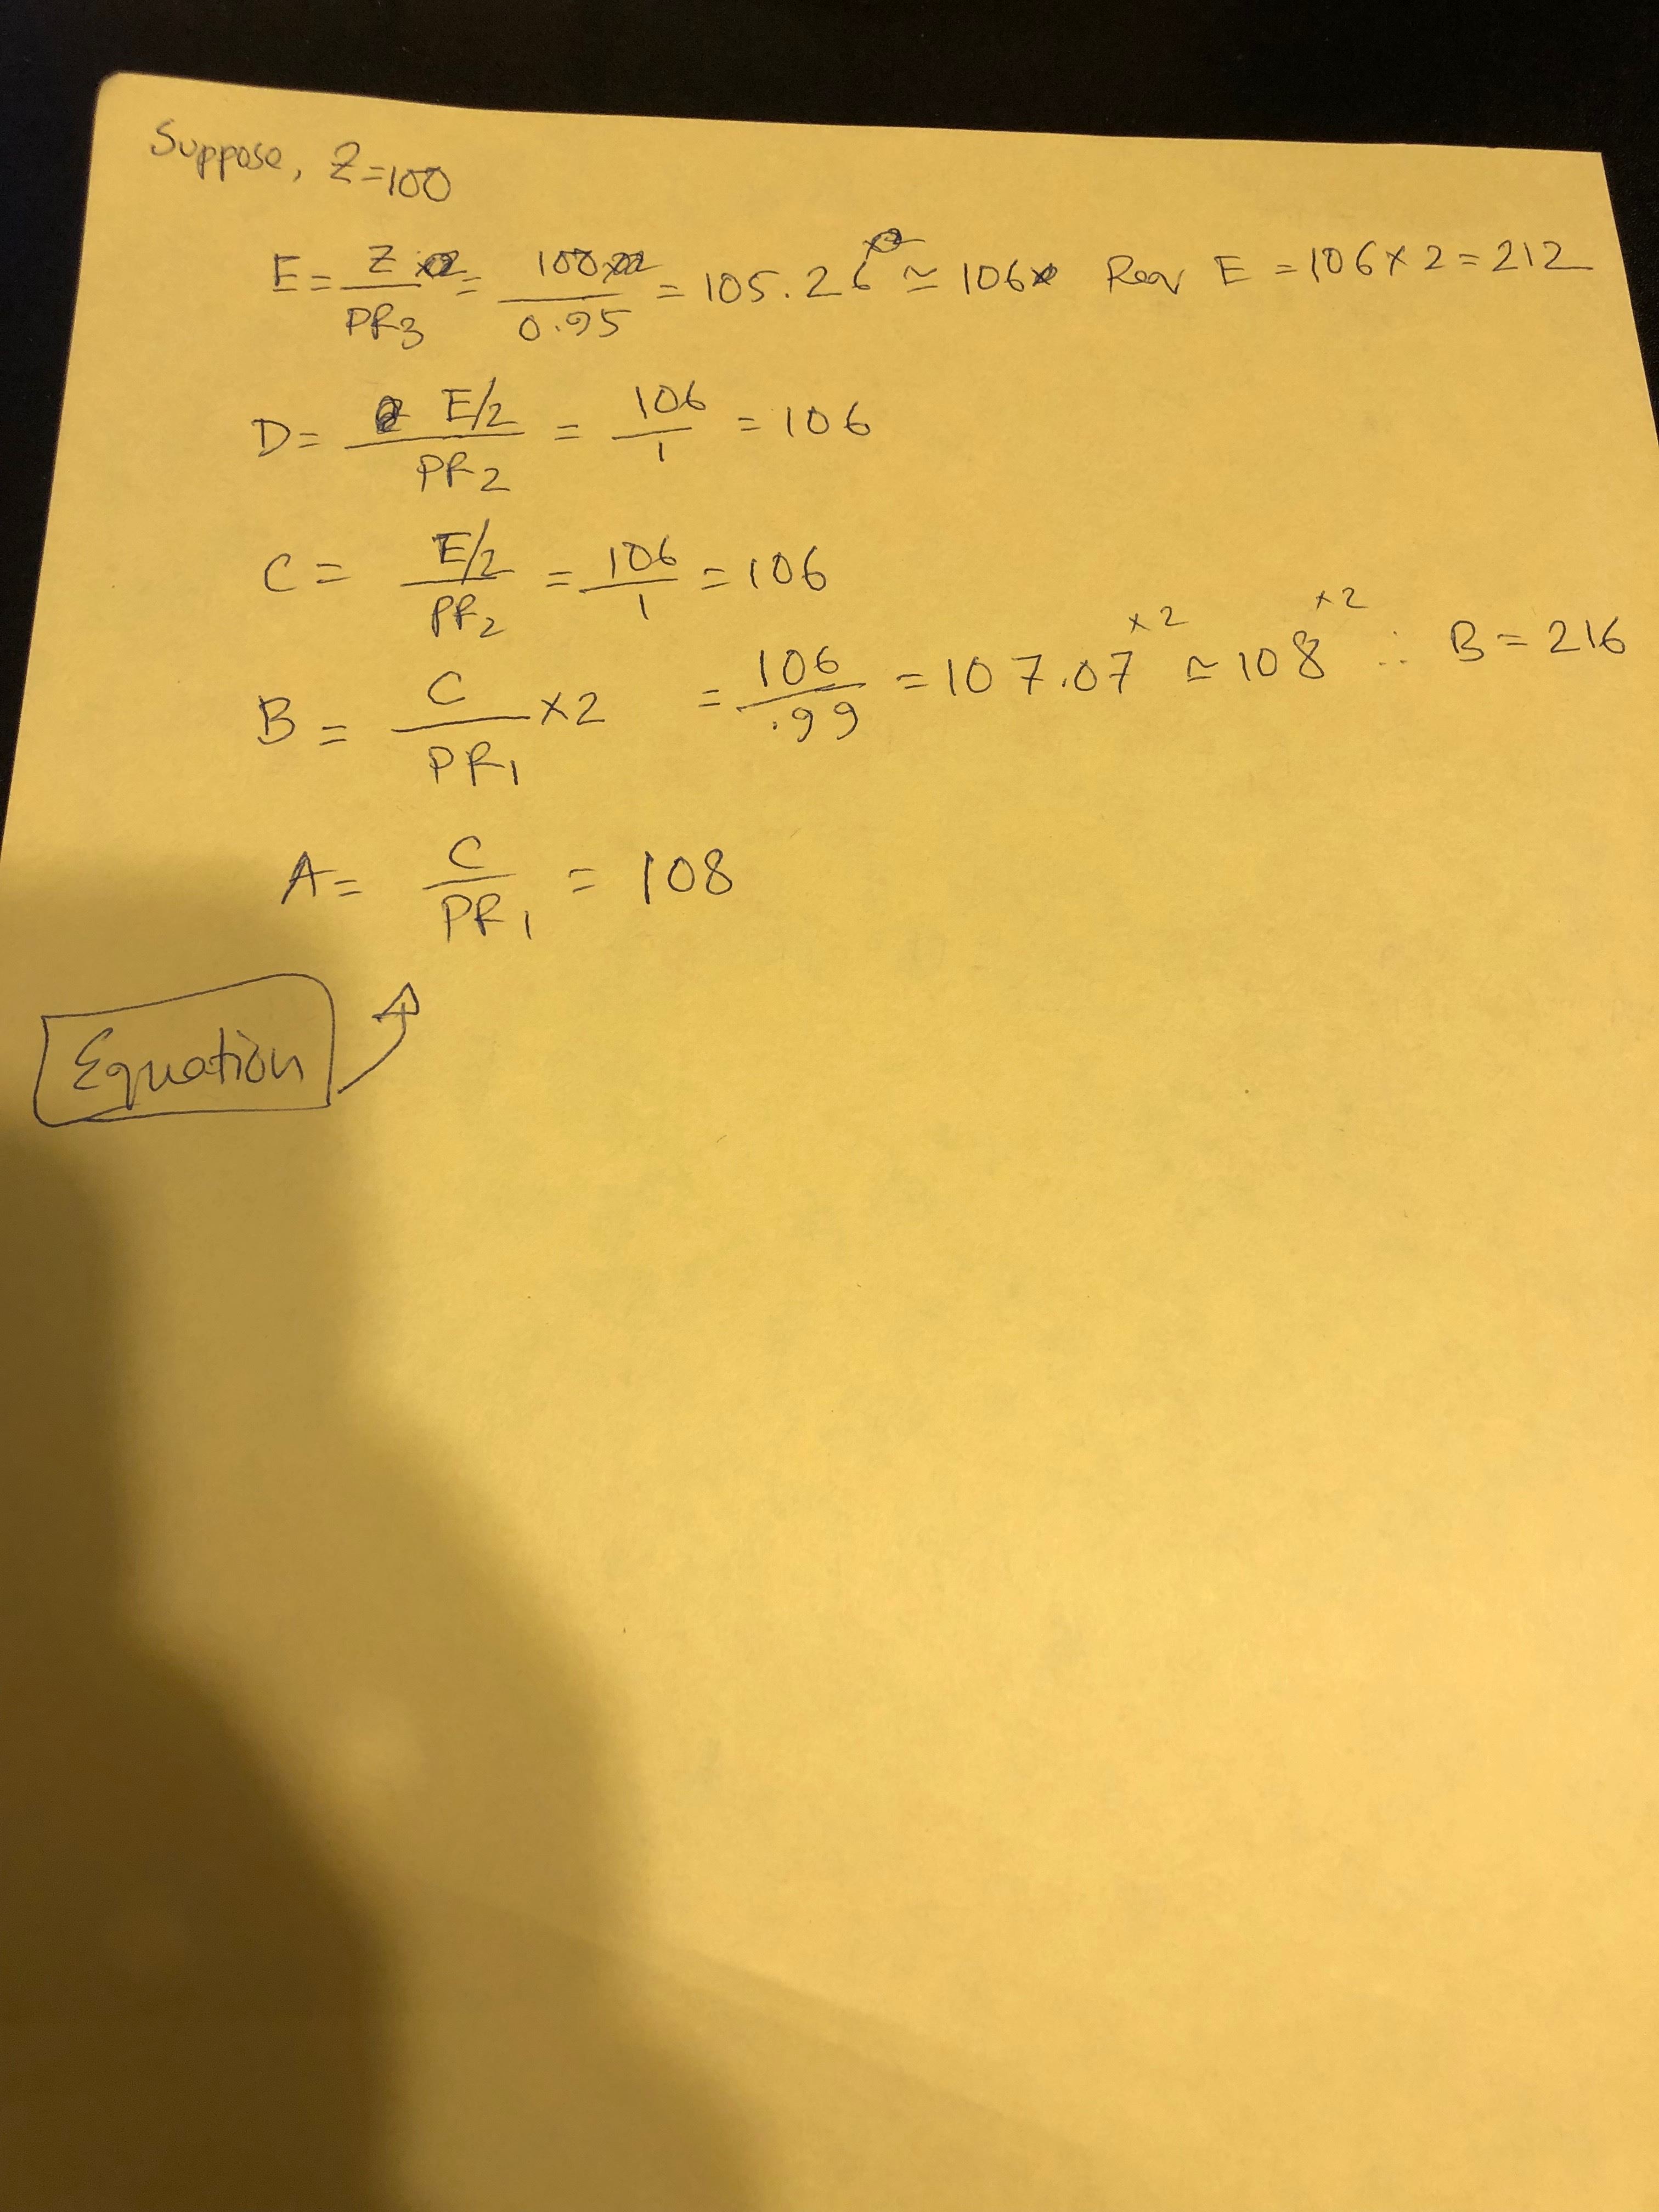 Suppose, Z=100
E = Z / PR3 = 100 / 0.95 = 105.26 ≃ 106 Rev E = 106 x 2 = 212
D = E/2 / PR2 = 106 / 1 = 106
C = E/2 / PR2 = 106 / 1 = 106
B = C / PR1 x 2 = 106 / .99 = 107.07 x2 ≃ 108 x2 ∴ B = 216
A = C / PR1 = 108
Equation